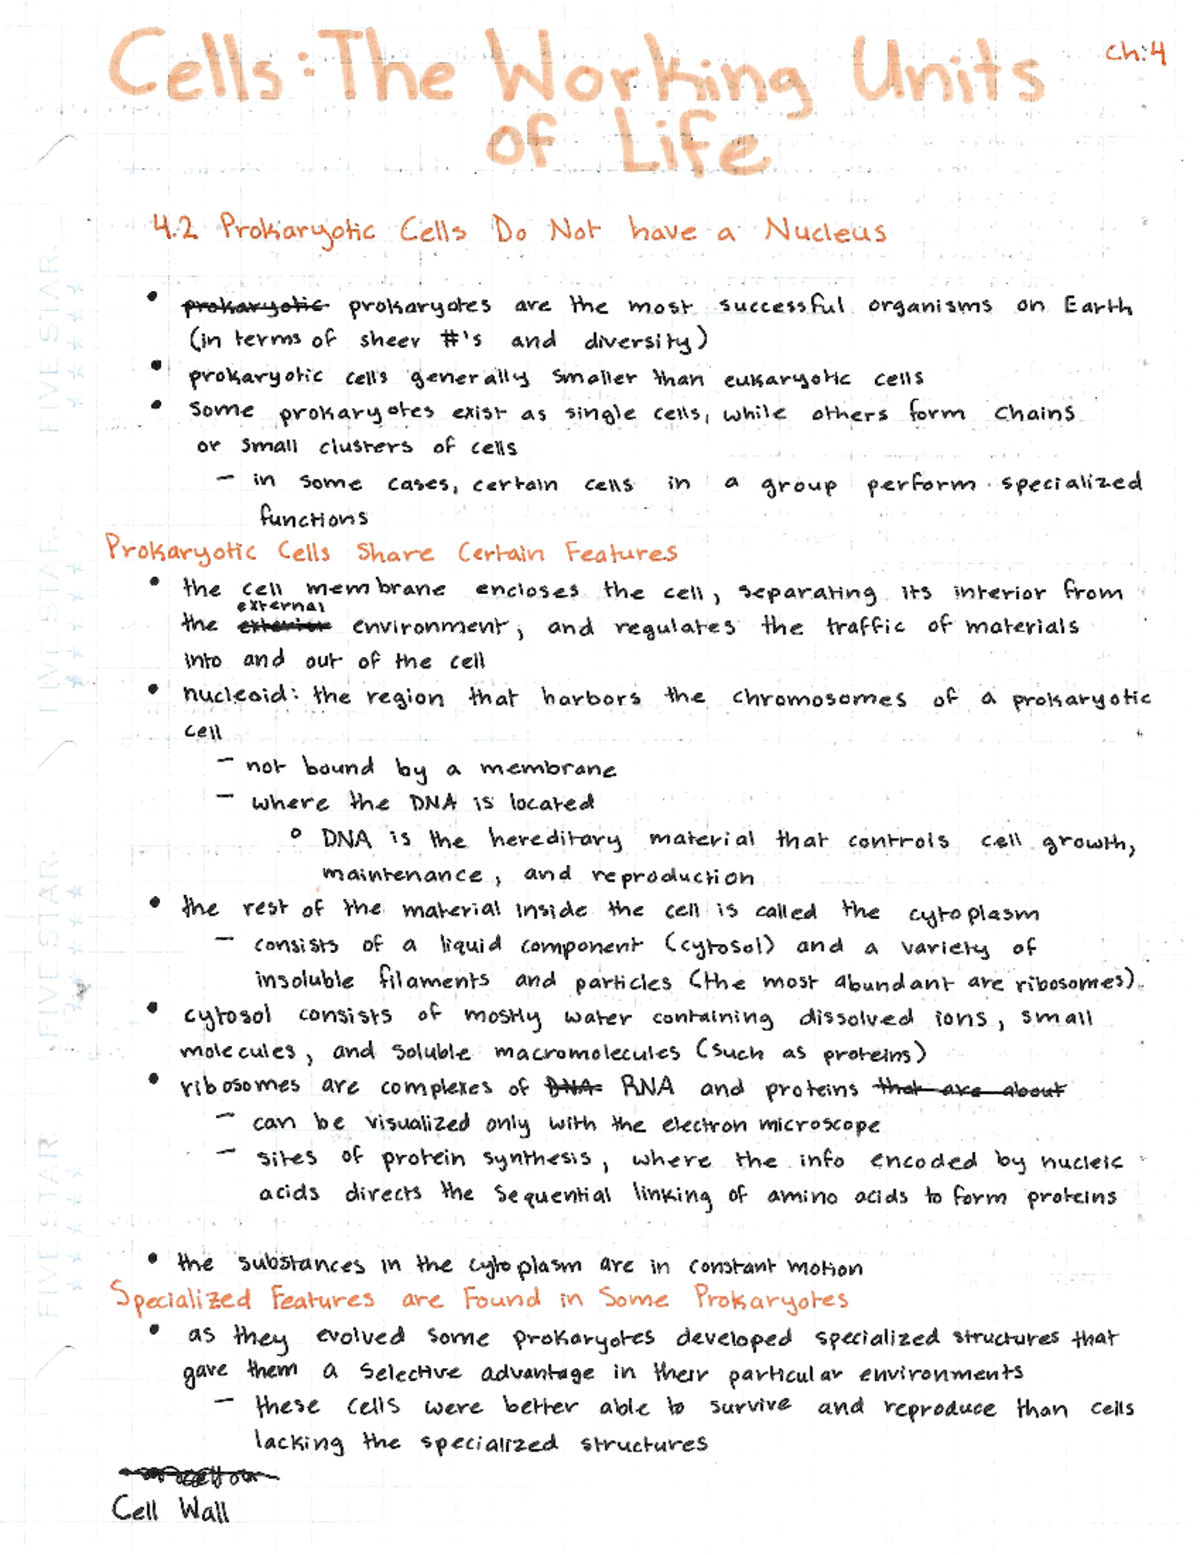 Ch:4
Cells: The Working Units
of Life
4.2 Prokaryotic Cells Do Not have a Nucleus
• prokaryotic prokaryotes are the most successful organisms on Earth
(in terms of sheer #'s and diversity)
• prokaryotic cells generally smaller than eukaryotic cells
• Some prokaryotes exist as single cells, while others form chains
or small clusters of cells
– in some cases, certain cells in a group perform specialized
functions
Prokaryotic Cells Share Certain Features
• the cell membrane encloses the cell, separating its interior from
external
the exterior environment, and regulates the traffic of materials
into and out of the cell
• nucleoid: the region that harbors the chromosomes of a prokaryotic
cell
– not bound by a membrane
– where the DNA is located
○ DNA is the hereditary material that controls cell growth,
maintenance, and reproduction
• the rest of the material inside the cell is called the cytoplasm
– consists of a liquid component (cytosol) and a variety of
insoluble filaments and particles (the most abundant are ribosomes).
• cytosol consists of mostly water containing dissolved ions, small
molecules, and soluble macromolecules (such as proteins)
• ribosomes are complexes of DNA RNA and proteins that are about
– can be visualized only with the electron microscope
– sites of protein synthesis, where the info encoded by nucleic
acids directs the sequential linking of amino acids to form proteins
• the substances in the cytoplasm are in constant motion
Specialized Features are Found in Some Prokaryotes
• as they evolved some prokaryotes developed specialized structures that
gave them a selective advantage in their particular environments
– these cells were better able to survive and reproduce than cells
lacking the specialized structures
Cell Wall
FIVE STAR.
FIVE STAR.
FIVE STAR.
FIVE STAR.